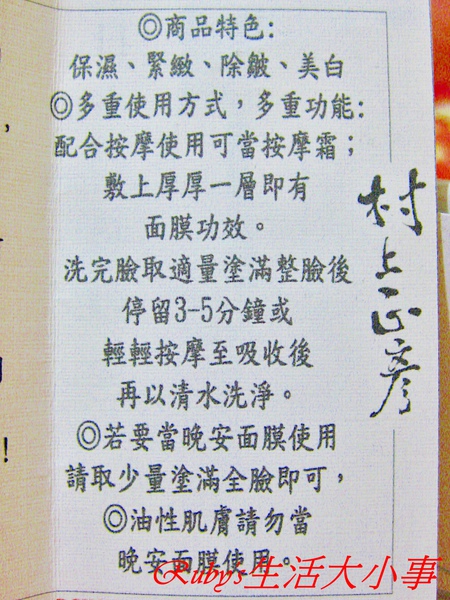 ◎商品特色:
保濕、緊緻、除皺、美白
◎多重使用方式，多重功能:
配合按摩使用可當按摩霜；
敷上厚厚一層即有
面膜功效。
洗完臉取適量塗滿整臉後
停留3-5分鐘或
輕輕按摩至吸收後
再以清水洗淨。
◎若要當晚安面膜使用
請取少量塗滿全臉即可，
◎油性肌膚請勿當
晚安面膜使用。
村上正彥
,
!
Rubys生活大小事